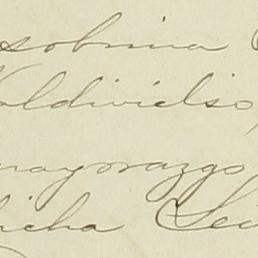 sobrina
Valdivielso,
mayorazgo
dicha